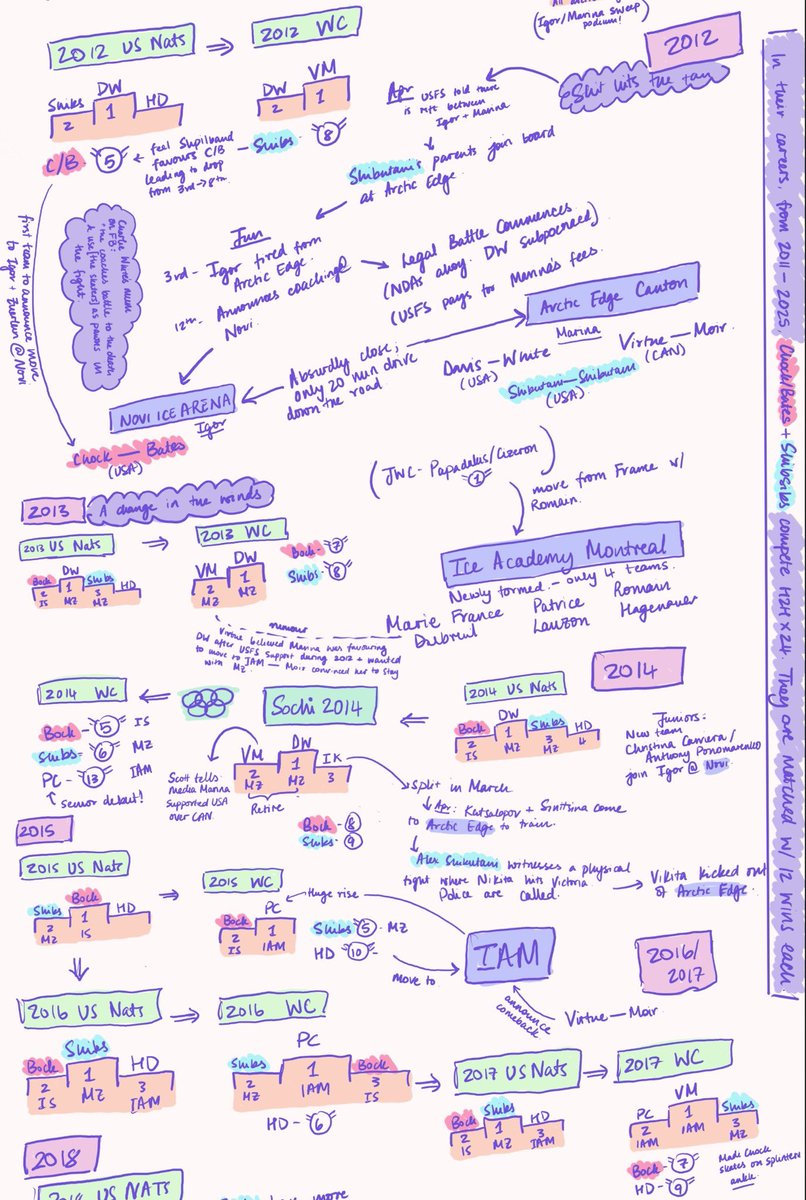 (Igor/Marina sweep
podium!)
2012 US Nats
2012 WC
2012
Shibs
2
DW
1
HD
DW
2
VM
1
Apr
USFS told there
is rift between
Igor + Marina
Shit hits the fan
C/B
5
feel Shpilband
favours C/B
leading to drop
from 3rd → 8th
Shibs
8
Shibutani's parents join board
at Arctic Edge.
first team to announce move
to Igor + Zueva @ Novi
Charlie White's mum
on FB:
"the coaches battle to the death
& use [the skaters] as pawns in
the fight."
Jun
3rd - Igor fired from
Arctic Edge.
12th - Announces coaching @
Novi
Legal Battle Commences
(NDAs ahoy. DW Subpoenaed)
(USFS pays for Marina's fees.
Arctic Edge Canton
Marina
Davis-White
(USA)
Virtue-Moir
(CAN)
Shibutani-Shibutani
(USA)
Absurdly close;
only 20 min drive
down the road.
NOVI ICE ARENA
Igor
Chock - Bates
(USA)
(JWC - Papadakis/Cizeron
1
)
move from France w/
Romain.
2013
A change in the winds
2013 US Nats
2013 WC
Bock
2
IS
DW
1
MZ
Shibs
3
MZ
HD
VM
2
MZ
DW
1
MZ
Bock - 7
Shibs - 8
Ice Academy Montreal
Newly formed - only 4 teams.
Marie France
Dubreuil
Patrice
Lauzon
Romain
Hagenauer
rumour
Virtue believed Marina was favouring
DW after USFS support during 2012 + wanted
to move to IAM — Moir convinced her to stay
with MZ.
2014
2014 WC
Sochi 2014
2014 US Nats
Bock - 5 IS
Shibs - 6 MZ
PC - 13 IAM
↑ senior debut!
Scott tells
media Marina
supported USA
over CAN.
VM
2
MZ
DW
1
MZ
IK
3
Retire
Bock - 8
Shibs - 9
Bock
2
IS
DW
1
MZ
Shibs
3
MZ
HD
4
Juniors:
New team
Christina Carreira/
Anthony Ponomarenko
join Igor @ Novi
Split in March
Apr: Katsalapov + Sinitsina come
to Arctic Edge to train.
Alex Shibutani witnesses a physical
fight where Nikita hits Victoria
Police are called.
Vikita kicked out
of Arctic Edge.
2015
2015 US Nats
2015 WC
Shibs
2
MZ
Bock
1
IS
HD
Bock
2
IS
PC
1
IAM
Huge rise
Shibs 5 - MZ
HD 10 -
move to
IAM
2016/
2017
announce
comeback
Virtue-Moir
2016 US Nats
2016 WC
Bock
2
IS
Shibs
1
MZ
HD
3
IAM
Shibs
2
MZ
PC
1
IAM
Bock
3
IS
HD - 6
2017 US Nats
2017 WC
Bock
2
IS
Shibs
1
MZ
HD
3
IAM
PC
2
IAM
VM
1
IAM
Shibs
3
MZ
Bock - 7
HD - 9
Madi Chock
skates on splinter
ankle
2018
In their careers, from 2011-2025 Chock/Bates + Shibsibs compete H2H x24. They are matched w/ 12 wins each